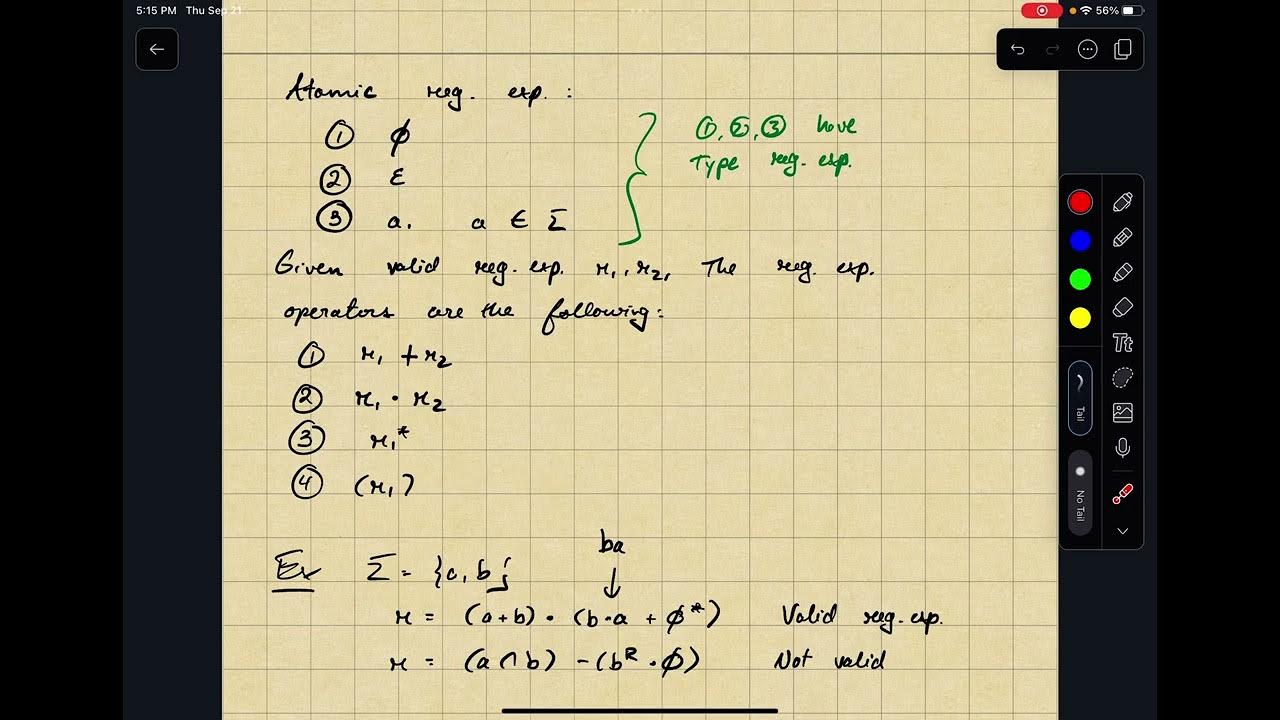 5:15 PM Thu Sep 21
56%
Atomic reg. exp. :
① ϕ
② ε
③ a. a ∈ Σ
①, ②, ③ have
Type reg. exp.
Given valid reg. exp. r₁, r₂, The reg. exp.
operators are the following:
① r₁ + r₂
② r₁ · r₂
③ r₁*
④ (r₁)
ba
↓
Ex Σ = {a, b}
r = (a+b) · (b·a + ϕ*) Valid reg. exp.
r = (a ∩ b) − (bᴿ · ϕ) Not valid
Tt
Tail
No Tail